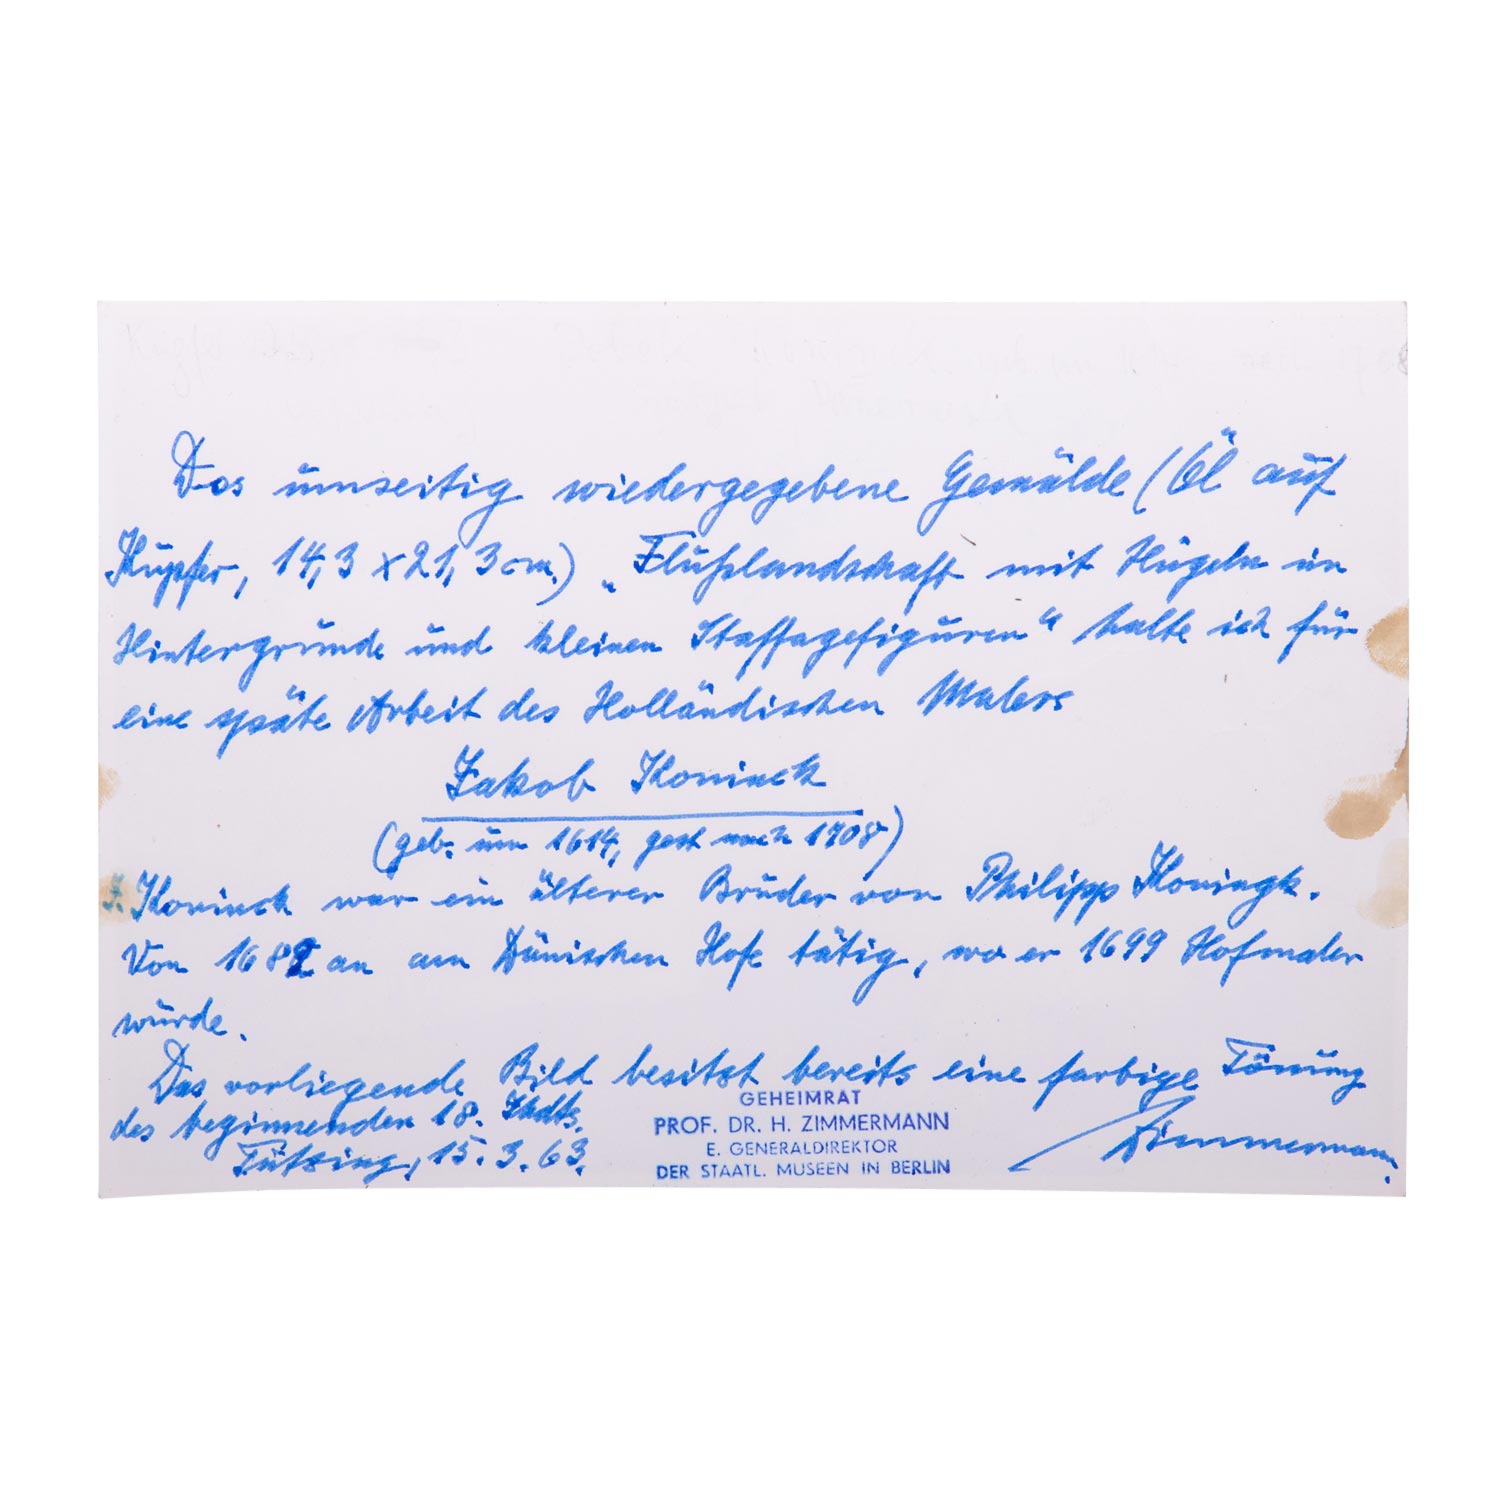 Das umseitig wiedergegebene Gemälde (Öl auf
Kupfer, 14,3 x 21,3 cm.) „Flußlandschaft mit Hügeln im
Hintergrunde und kleinen Staffagefiguren“ halte ich für
eine späte Arbeit des Holländischen Malers
Jakob Koninck
(geb. um 1614, gest nach 1708)
J. Koninck war ein älterer Bruder von Philipp Koningk.
Von 1682 an am Dänischen Hofe tätig, wo er 1699 Hofmaler
wurde.
Das vorliegende Bild besitzt bereits eine farbige Tönung
des beginnenden 18. Jhdts.
Tützing, 15.3.63.
GEHEIMRAT
PROF. DR. H. ZIMMERMANN
E. GENERALDIREKTOR
DER STAATL. MUSEEN IN BERLIN
Zimmermann.